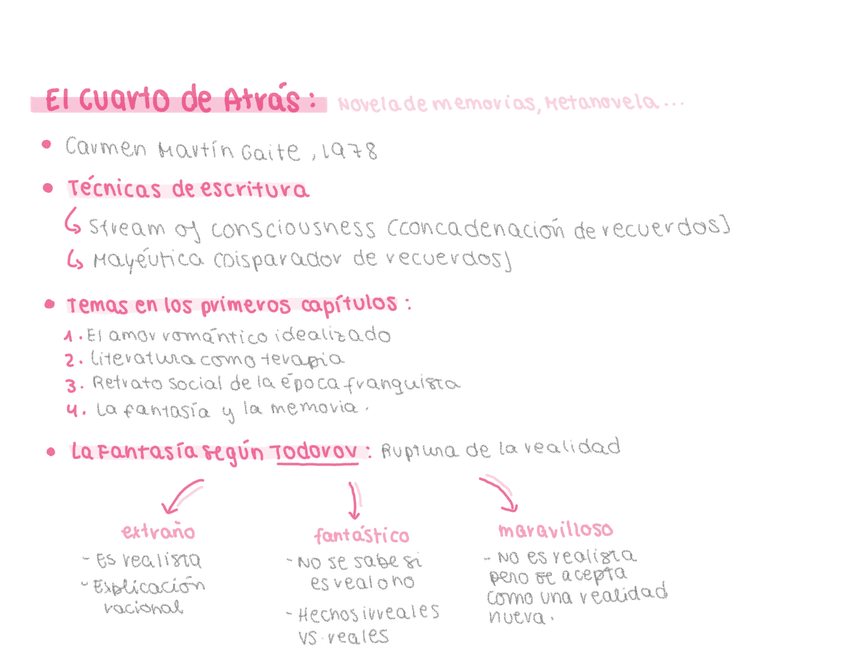 El Cuarto de Atrás: Novela de memorias, Metanovela...
• Carmen Martín Gaite, 1978
• Técnicas de escritura
↳ Stream of consciousness (concadenación de recuerdos)
↳ Mayéutica (Disparador de recuerdos)
• Temas en los primeros capítulos:
1. El amor romántico idealizado
2. Literatura como terapia
3. Retrato social de la época franquista
4. La fantasía y la memoria.
• La Fantasía según Todorov: Ruptura de la realidad
extraño
- Es realista
- Explicación
racional
fantástico
- No se sabe si
es real o no
- Hechos irreales
VS reales
maravilloso
- No es realista
pero se acepta
como una realidad
nueva.